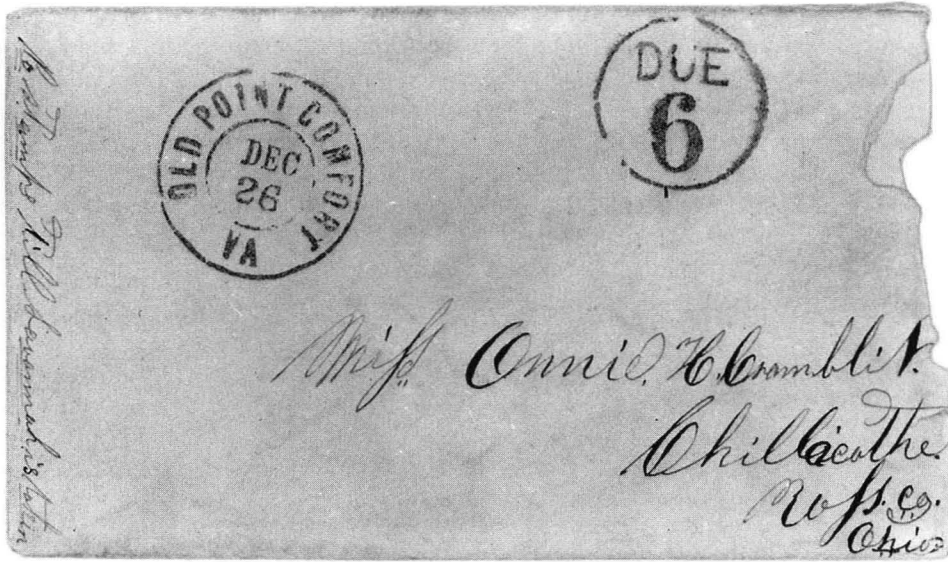 No stamps till Savannah is taken
OLD POINT COMFORT
DEC
26
VA
DUE
6
Miss Annie. H. Cramblit.
Chillicothe.
Ross. Co.
Ohio